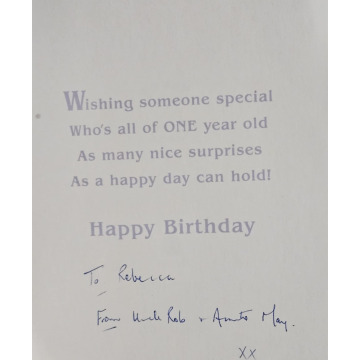 Wishing someone special
Who's all of ONE year old
As many nice surprises
As a happy day can hold!
Happy Birthday
To Rebecca
From Uncle Rob + Aunty May.
XX